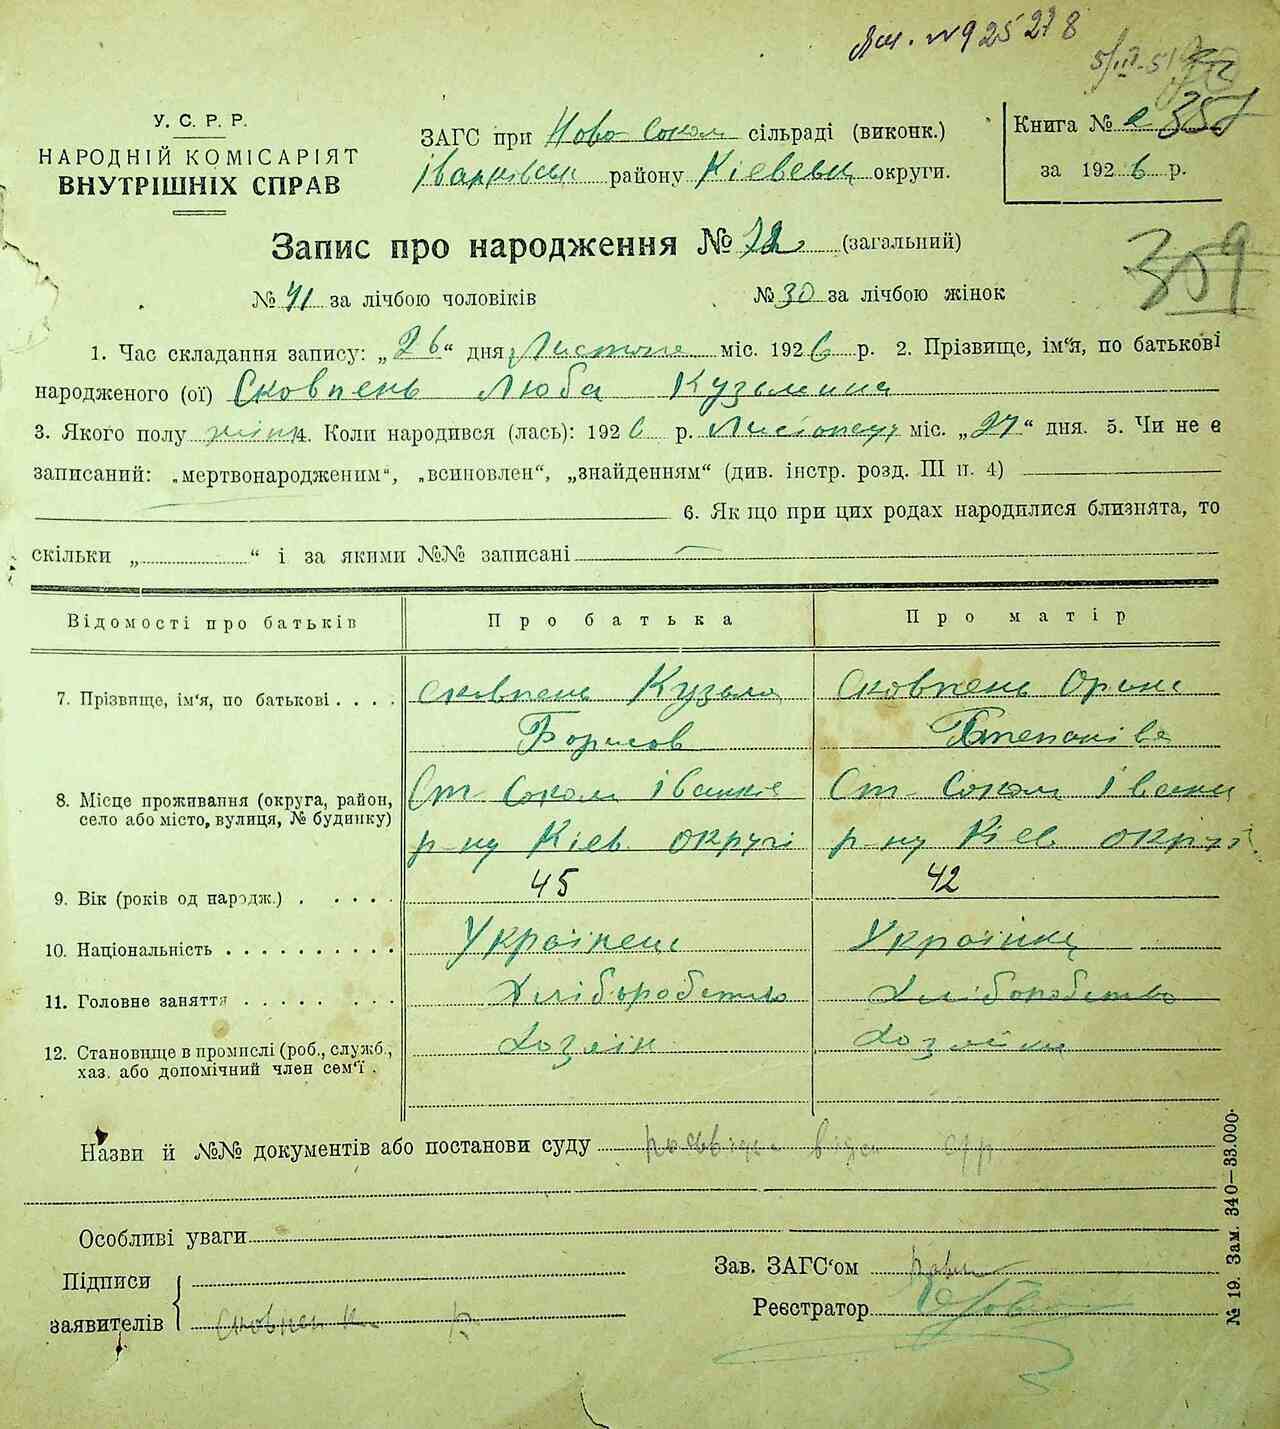 № 925278
У. С. Р. Р.
НАРОДНІЙ КОМІСАРІЯТ
ВНУТРІШНІХ СПРАВ
ЗАГС при Ново Соколи сільраді (виконк.)
Іванківськ району Київськ округи.
Книга № 357
за 1926 р.
Запис про народження № 72 (загальний)
359
№ 41 за лічбою чоловіків № 30 за лічбою жінок
1. Час складання запису: „26“ дня Листопа міс. 1926 р. 2. Прізвище, ім'я, по батькові
народженого (ої) Сковпень Люба Кузьмина
3. Якого полу жіно 4. Коли народився (лась): 1926 р. міс. „27“ дня. 5. Чи не є
записаний: „мертвонародженим“, „всиновлен“, „знайденням“ (див. інстр. розд. III п. 4)
6. Як що при цих родах народилися близнята, то
скільки „ “ і за якими №№ записані
Відомості про батьків Про батька Про матір
7. Прізвище, ім'я, по батькові . . . . Сковпень Кузьма Сковпень Орина
Борисов Степанівна
8. Місце проживання (округа, район, Ст Соколи Іванків Ст Соколи Іванки
село або місто, вулиця, № будинку)
р-ну Кіев округі р-ну Кіев округі
9. Вік (років од народж.) . . . . . 45 42
10. Національність . . . . . . . . . . Українець Українка
11. Головне заняття . . . . . . . . Хліборобство Хліборобство
12. Становище в промислі (роб., служб., Хозяін Хозяйка
хаз. або допомічний член сем'ї .
Назви й №№ документів або постанови суду
Особливі уваги
Підписи Зав. ЗАГС'ом
заявителів Сковпень К Реєстратор
№ 19. Зам. 340—33.000.